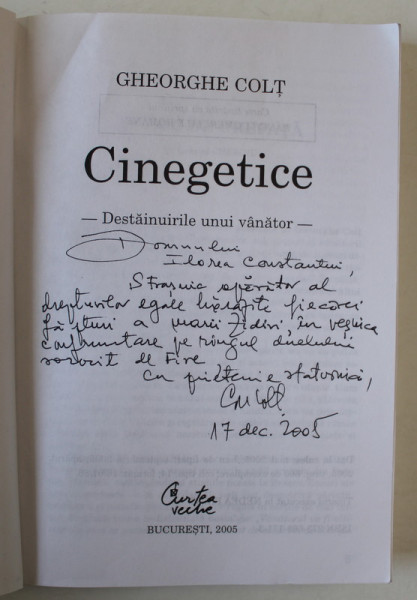 GHEORGHE COLȚ
Cinegetice
— Destăinuirile unui vânător —
Domnului
Florea Constantin,
Strașnic apărător al
drepturilor egale hărăzite fiecărei
făpturi a marii Zidiri, în veșnica
confruntare pe ringul duelului
sorocit de Fire
Cu prietenie statornică,
17 dec. 2005
Curtea
veche
BUCUREȘTI, 2005